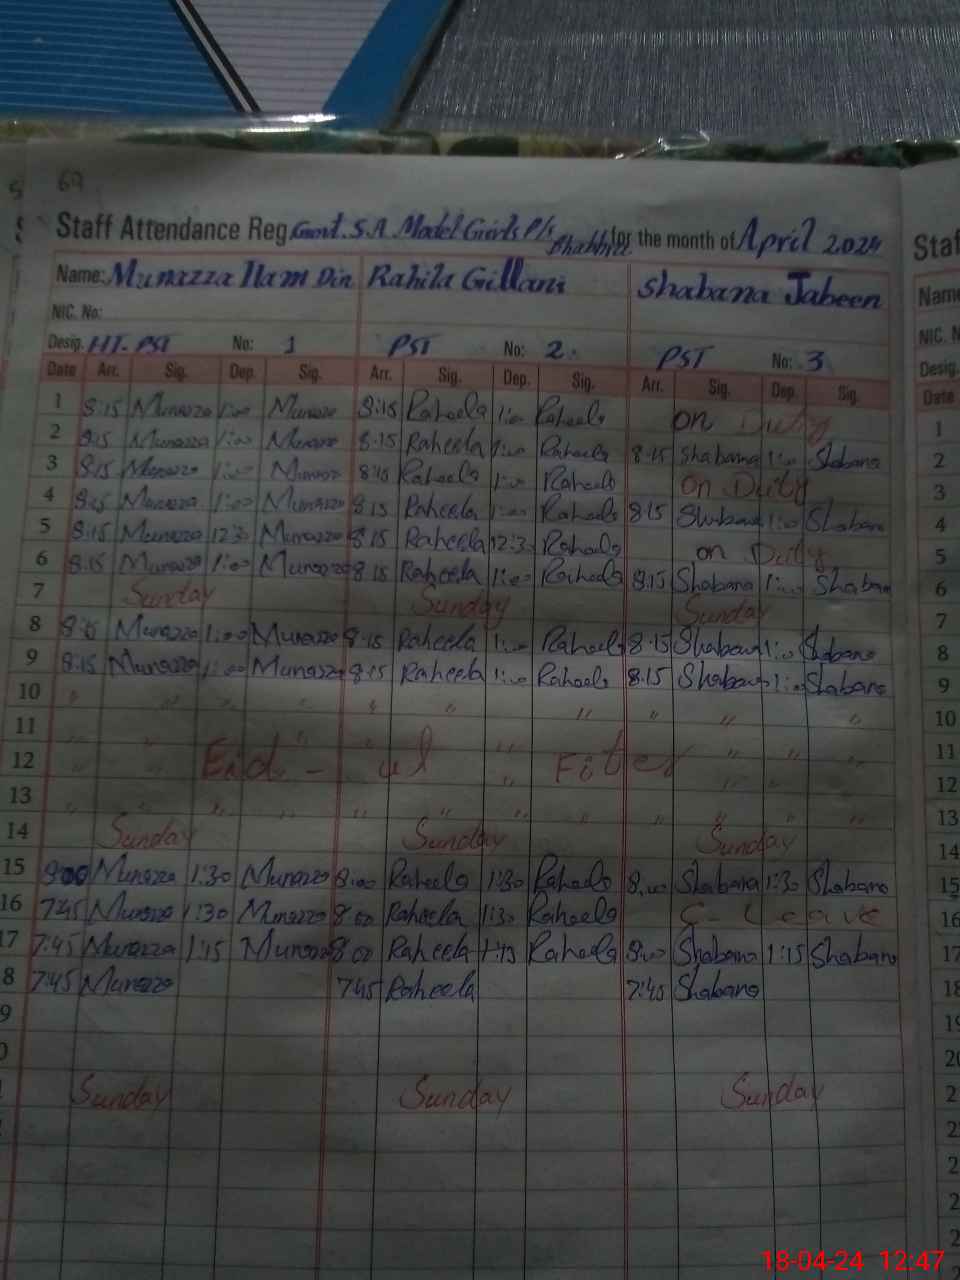 69
Staff Attendance Reg Govt. S.A. Model Girls P/s for the month of April 2024
Name: Munazza Ilam Din Rahila Gillani Shabana Jabeen
NIC. No:
Desig. HT. PST No: 1 PST No: 2. PST No: 3
Date Arr. Sig. Dep. Sig. Arr. Sig. Dep. Sig. Arr. Sig. Dep. Sig.
1 8:15 Munazza 1:00 Munazza 8:15 Raheela 1:00 Raheela on Duty
2 8:15 Munazza 1:00 Munazza 8:15 Raheela 1:00 Raheela 8:15 Shabana 1:00 Shabana
3 8:15 Munazza 1:00 Munazza 8:15 Raheela 1:00 Raheela on Duty
4 8:15 Munazza 1:00 Munazza 8:15 Raheela 1:00 Raheela 8:15 Shabana 1:00 Shabana
5 8:15 Munazza 12:30 Munazza 8:15 Raheela 12:30 Raheela on Duty
6 8:15 Munazza 1:00 Munazza 8:15 Raheela 1:00 Raheela 8:15 Shabana 1:00 Shabana
7 Sunday Sunday Sunday
8 8:15 Munazza 1:00 Munazza 8:15 Raheela 1:00 Raheela 8:15 Shabana 1:00 Shabana
9 8:15 Munazza 1:00 Munazza 8:15 Raheela 1:00 Raheela 8:15 Shabana 1:00 Shabana
10 " " " " " " " " "
11 " " " " " " " "
12 " " Eid - ul " Fiter " "
13 " " " " " " " " " " " "
14 Sunday Sunday Sunday
15 8:00 Munazza 1:30 Munazza 8:00 Raheela 1:30 Raheela 8:00 Shabana 1:30 Shabana
16 7:45 Munazza 1:30 Munazza 8:00 Raheela 1:30 Raheela C-Leave
17 7:45 Munazza 1:15 Munazza 8:00 Raheela 1:15 Raheela 8:00 Shabana 1:15 Shabana
8 7:45 Munazza 7:45 Raheela 7:45 Shabana
9
0
Sunday Sunday Sunday
Staf
Name
NIC. N
Desig.
Date
1
2
3
4
5
6
7
8
9
10
11
12
13
14
15
16
17
18
19
20
2
2
2
2
2
2
18-04-24 12:47